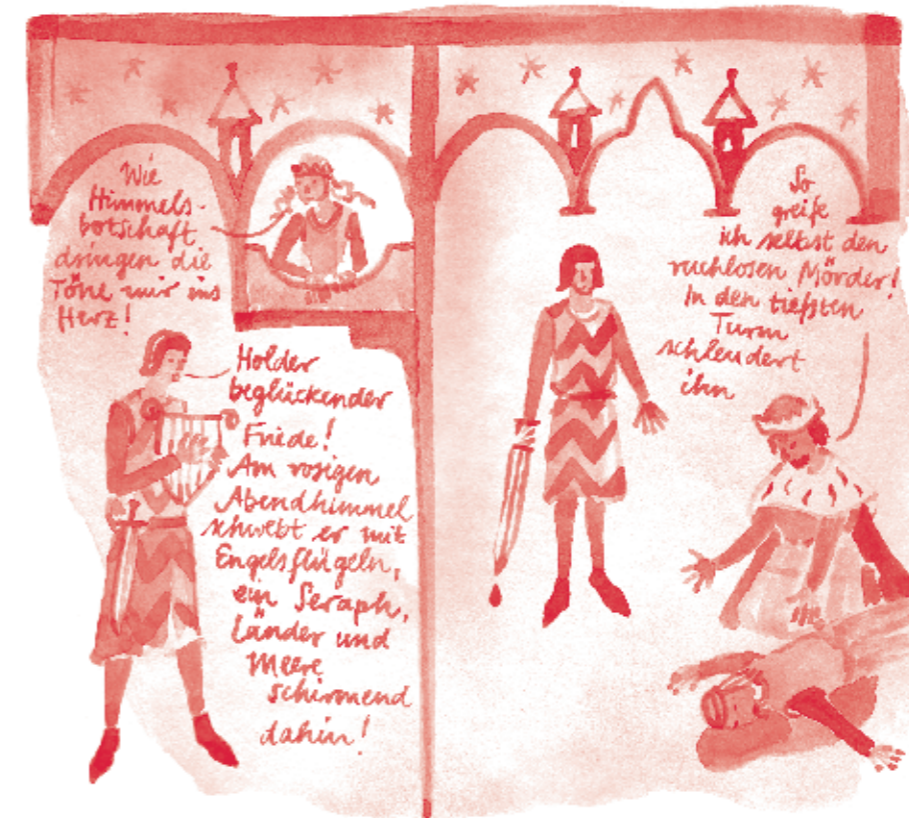 Wie
Himmels-
botschaft
dringen die
Töne mir ins
Herz!
Holder
beglückender
Friede!
Am rosigen
Abendhimmel
schwebt er mit
Engelsflügeln,
ein Seraph,
Länder und
Meere
schirmend
dahin!
So
greife
ich selbst den
ruchlosen Mörder!
In den tiefsten
Turm
schleudert
ihn